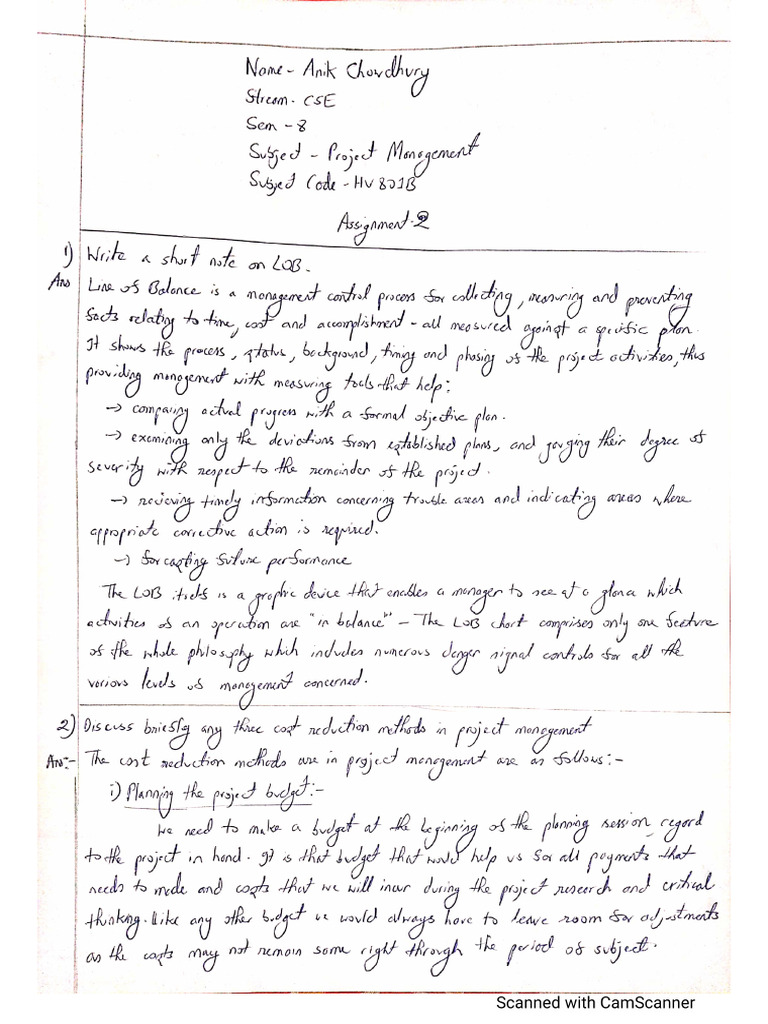 Name - Anik Chowdhury
Stream - CSE
Sem - 8
Subject - Project Management
Subject Code - HU801B
Assignment-2
1) Write a short note on LOB.
Ans Line of Balance is a management control process for collecting, measuring and preventing
facts relating to time, cost and accomplishment - all measured against a specific plan.
It shows the process, status, background, timing and phasing of the project activities, thus
providing management with measuring tools that help:
→ comparing actual progress with a formal objective plan.
→ examining only the deviations from established plans, and gauging their degree of
severity with respect to the remainder of the project.
→ recieving timely information concerning trouble areas and indicating areas where
appropriate corrective action is required.
→ forcasting future performance
The LOB itself is a graphic device that enables a manager to see at a glance which
activities of an operation are "in balance" - The LOB chart comprises only one feature
of the whole philosophy which includes numerous danger signal controls for all the
various levels of management concerned.
2) Discuss briefly any three cost reduction methods in project management
Ans:- The cost reduction methods are in project management are as follows:-
i) Planning the project budget:-
We need to make a budget at the beginning of the planning session regard
to the project in hand. It is that budget that would help us for all payments that
needs to made and costs that we will incur during the project research and critical
thinking. Like any other budget we would always have to leave room for adjustments
as the costs may not remain same right through the period of subject.
Scanned with CamScanner